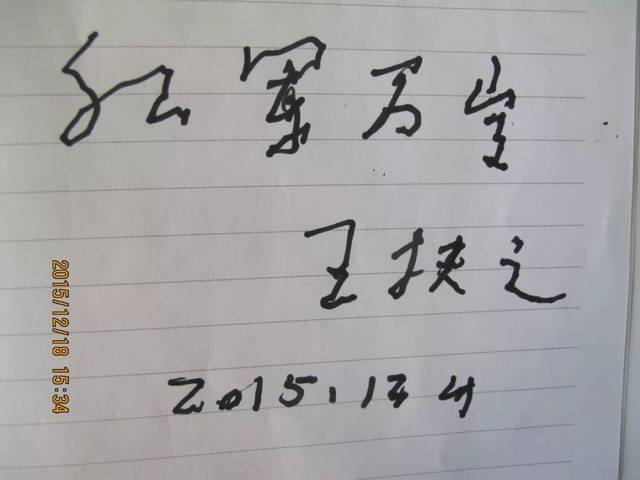 红军万岁
王扶之
2015.12.4
2015/12/18 15:34